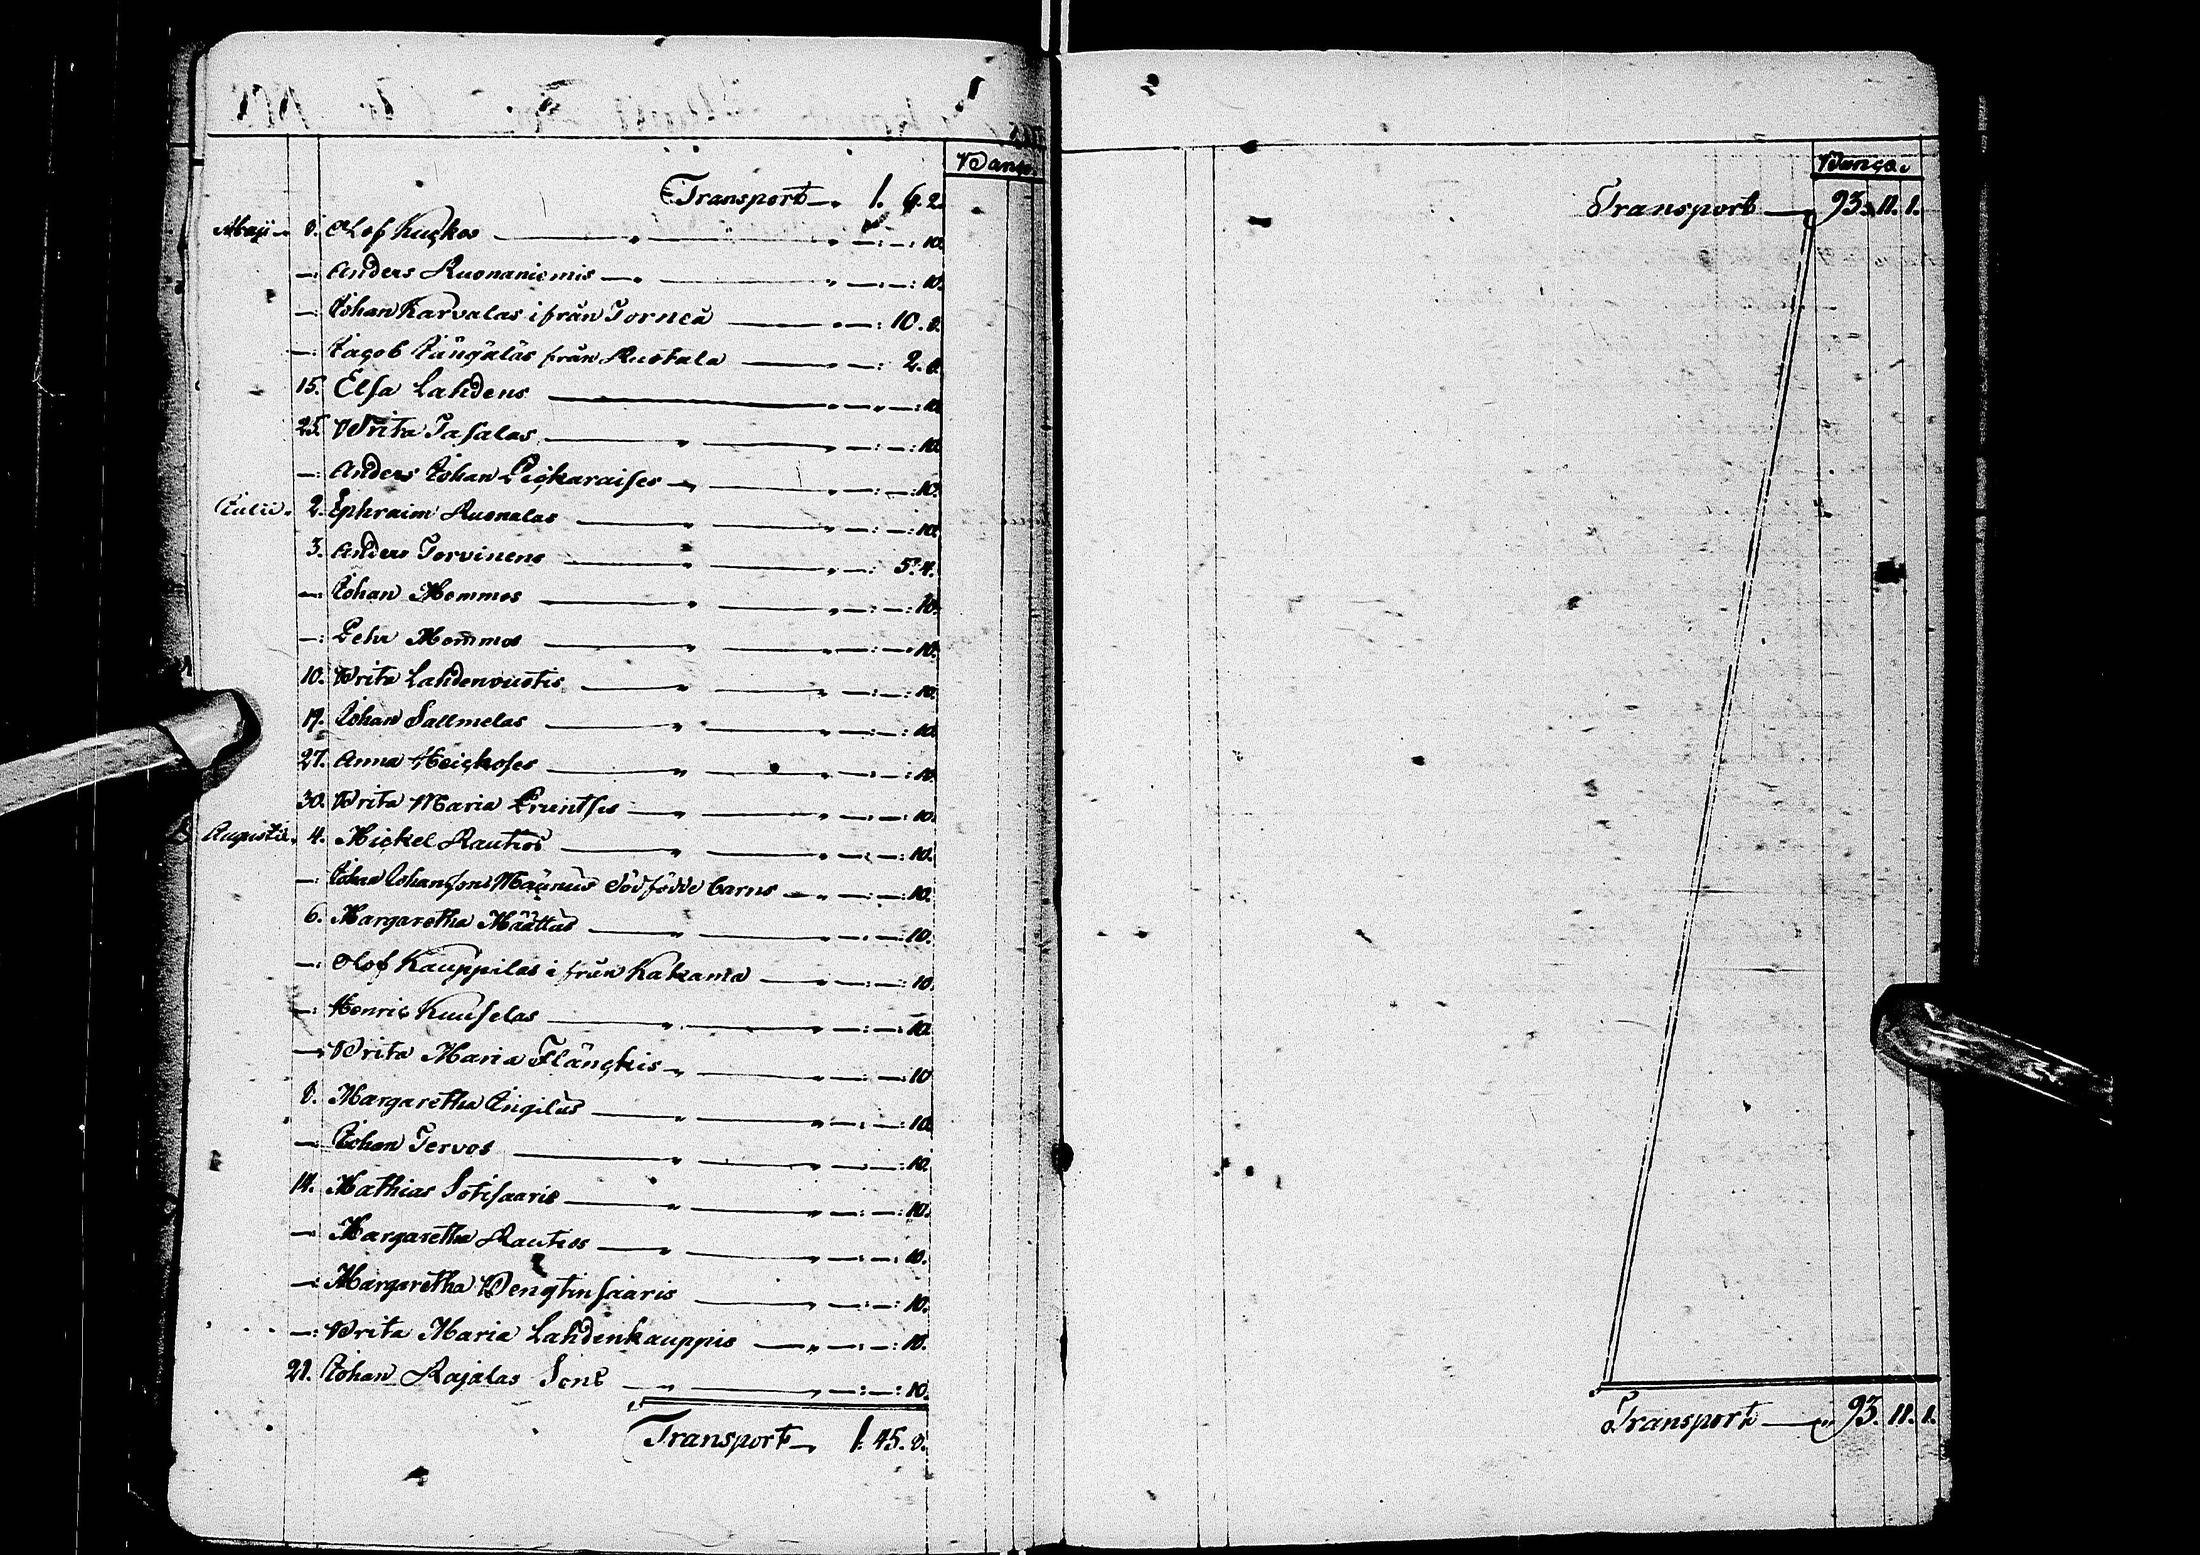 Banco.
Transport 1. 6. 2.
Maji 8. Olof Kuckos — — : 10.
— Anders Ruonaniemis — — : 10.
— Johan Karvalas ifrån Torneå — : 10. 8.
— Jacob Jängäläs från Ruotala — : 2. 8.
15. Elsa Lahdens — — : 10.
25. Brita Tasalas — — : 10.
— Anders Johan Pickaraises — — : 10.
Julii. 2. Ephraim Ruonalas — — : 10.
3. Anders Torvinens — : 5. 4.
— Johan Mommos — — : 10.
— Pehr Mommos — — : 10.
10. Brita Lahdenvuotis — — : 10.
19. Johan Sallmelas — — : 10.
27. Anna Heickoses — — : 10.
30. Brita Maria — — : 10.
Augusti. 4. Mickel Rautios — — : 10.
— Johan Johansons Magnus dödfödde barns — : — : 10.
6. Margaretha Määttäs — — : 10.
— Olof Kauppilas ifrån Kakama — — : 10.
— Henric Kuuselas — — : 10.
— Brita Maria Fläнckis — — : 10
8. Margaretha Ängiläs — — : 10.
— Johan Tervos — — : 10.
14. Mathias Sotisaaris — — : 10.
— Margaretha Rautios — — : 10.
— Margaretha Bengtinsaaris — — : 10.
— Brita Maria Lahdenkauppis — — : 10.
21. Johan Rajalas Sons — — : 10.
Transport 1. 45. 8.
2
Banco.
Transport — 93. 11. 1.
Transport — 93. 11. 1.